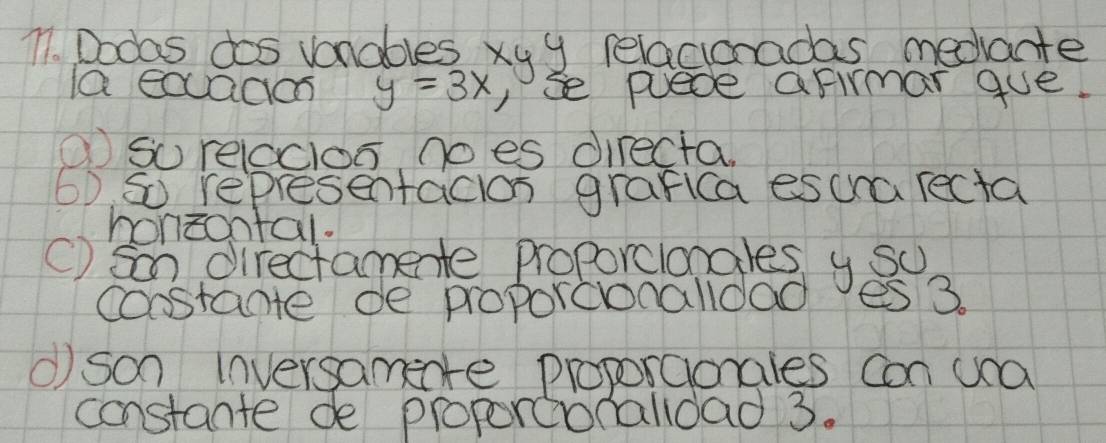 11. Dadas dos variables x y y relacionadas mediante
la ecuación y = 3x, se puede afirmar que.
a) su relación no es directa.
b) su representación grafica es una recta
horizontal.
c) son directamente proporcionales y su
constante de proporcionalidad es 3.
d) son inversamente proporcionales con una
constante de proporcionalidad 3.